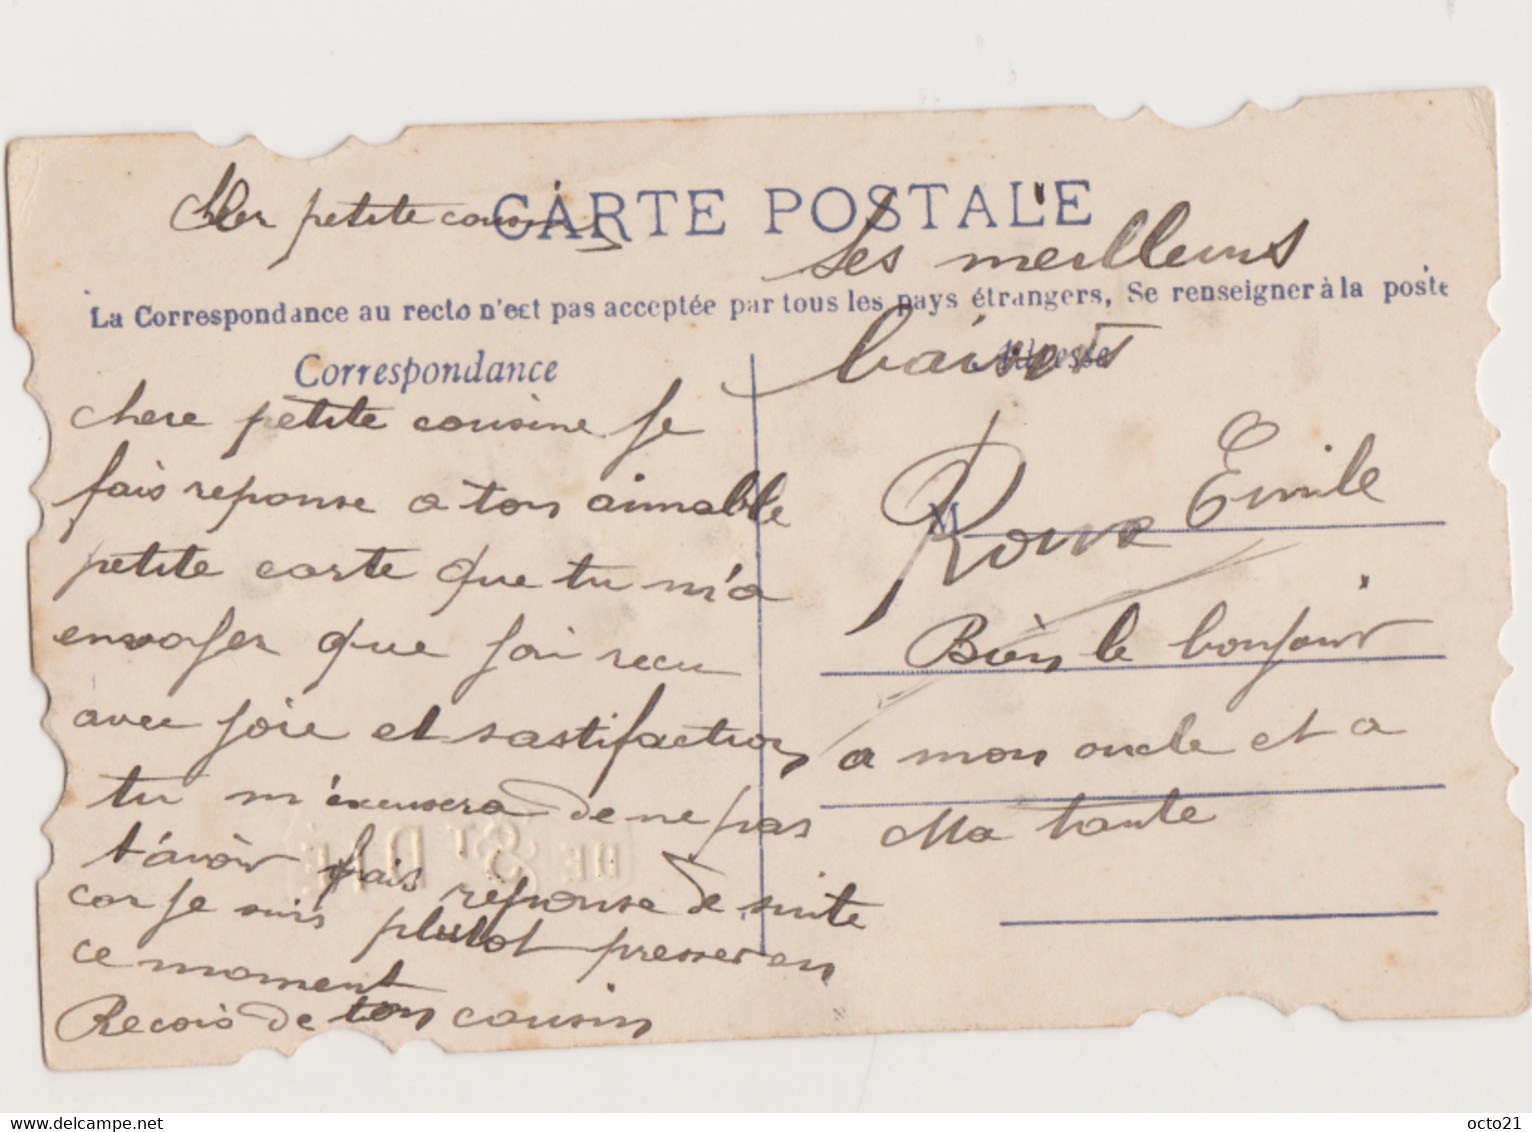 CARTE POSTALE
Cher petite cousine
La Correspondance au recto n'est pas acceptée par tous les pays étrangers, Se renseigner à la poste
Correspondance
chere petite cousine je
fais reponse a ton aimable
petite carte que tu m'a
envoyer que j'ai recu
avec joie et sastifaction
tu m'excusera de ne pas
t'avoir fais reponse de suite
car je suis plutot presser en
ce moment
Recois de ton cousin
ses meilleurs
Adresse
baisers
M
Roux Emile
Bien le bonjour
a mon oncle et a
Ma tante
DE St DIÉ
delcampe.net
octo21